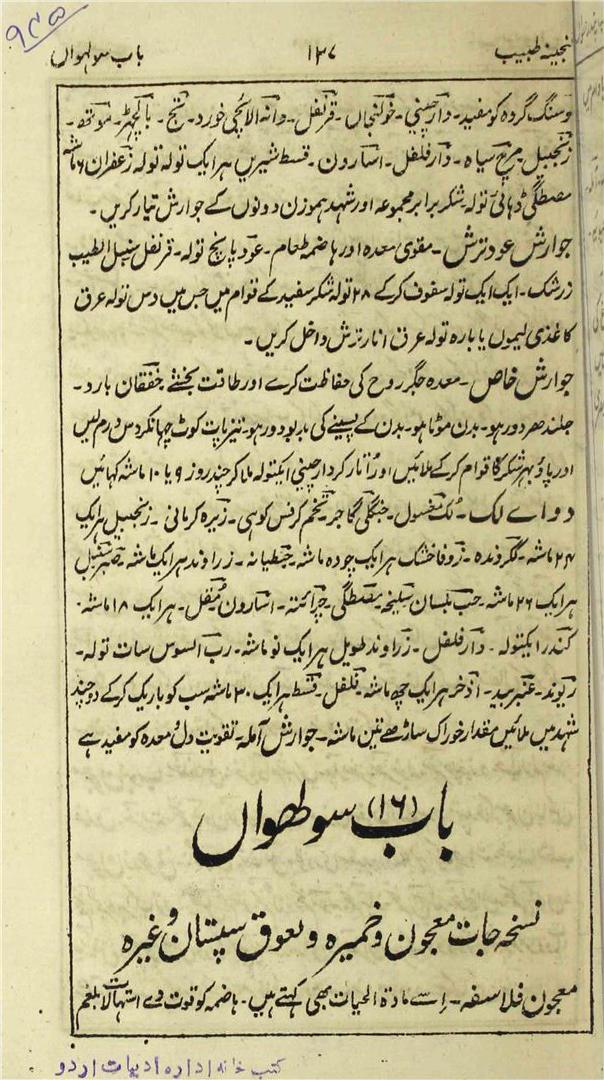 گنجینہ طبیب
۱۳۷
باب سولہواں
وسنگ گردہ کو مفید۔ دارچینی۔ خولنجاں۔ قرنفل۔ دانہ الائچی خورد۔ تج۔ بالچھڑ۔ موتھ۔
زنجبیل مرچ سیاہ۔ دارفلفل۔ اسارون۔ قسط شیریں ہر ایک تولہ تولہ زعفران ۶ ماشہ
مصطگی ڈہائی تولہ شکر برابر مجموعہ اور شہد ہموزن دونوں کے جوارش تیار کریں۔
جوارش عود ترش۔ مقوی معدہ اور ہاضمہ طعام۔ عود پانچ تولہ۔ قرنفل سنبل الطیب
زرشک۔ ایک ایک تولہ سفوف کرکے ۲۸ تولہ شکر سفید کے قوام میں جس میں دس تولہ عرق
کاغذی لیموں یا بارہ تولہ عرق انار ترش داخل کریں۔
جوارش خاص۔ معدہ جگر روح کی حفاظت کرے اور طاقت بخشے خفقان بارد۔
جلندھر دور ہو۔ بدن موٹا ہو۔ بدن کے پسینے کی بدبو دور ہو۔ تیزپات کوٹ چہانکر دس درم لیں
اور پاؤ بھر شکر کا قوام کرکے ملائیں اور اُتار کر دارچینی ایکتولہ ملا کر چند روز ۹ یا ۱۰ ماشہ کہائیں
دواے لک۔ لک مغسول۔ جنگلی گاجر۔ تخم کرفس کوہی۔ زیرہ کرمانی۔ زنجبیل ہر ایک
۲۴ ماشہ۔ ککروندہ۔ زوفا خشک ہر ایک چودہ ماشہ۔ جنطیانہ۔ زراوند ہر ایک ماشہ
ہر ایک ۲۶ ماشہ۔ حب بلسان سلیخہ۔ مصطگی۔ چرائتہ۔ اسارون مقل۔ ہر ایک ۱۸ ماشہ۔
کندر ایکتولہ۔ دارفلفل۔ زراوند طویل ہر ایک نو ماشہ۔ رب السوس سات تولہ۔
ریوند۔ عنبربید۔ اذخر ہر ایک چھ ماشہ۔ فلفل۔ قسط ہر ایک ۳۰ ماشہ سب کو باریک کرکے دوچند
شہد میں ملائیں مقدار خوراک ساڑھے تین ماشہ۔ جوارش آملہ۔ تقویت دل و معدہ کو مفید ہے
باب (۱۶) سولھواں
نسخہ جات معجون و خمیرہ و لعوق سپستان وغیرہ
معجون فلاسفہ۔ اِسے مادۃ الحیات بھی کہتے ہیں۔ ہاضمہ کو قوت دے اشتہا لائے بلغم
کتب خانہ ادارہ ادبیات اردو